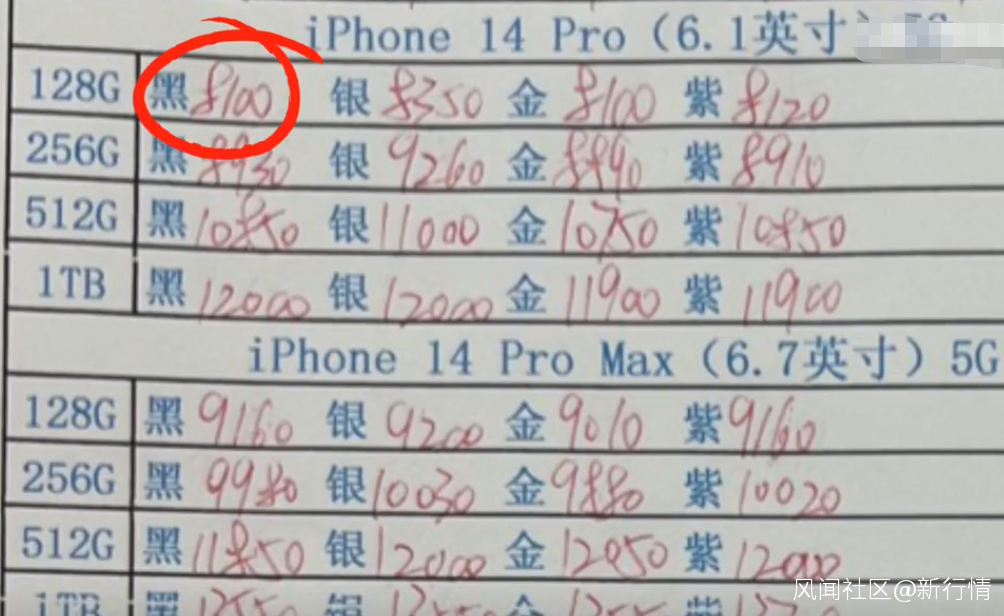 iPhone 14 Pro（6.1英寸）5G
128G 黑 8100 银 8350 金 8100 紫 8120
256G 黑 8930 银 9260 金 8890 紫 8910
512G 黑 10850 银 11000 金 10750 紫 10850
1TB 黑 12000 银 12000 金 11900 紫 11900
iPhone 14 Pro Max（6.7英寸）5G
128G 黑 9160 银 9200 金 9010 紫 9160
256G 黑 9980 银 10030 金 9880 紫 10020
512G 黑 11850 银 12000 金 12050 紫 12000
1TB 黑 银 金 紫
风闻社区@新行情